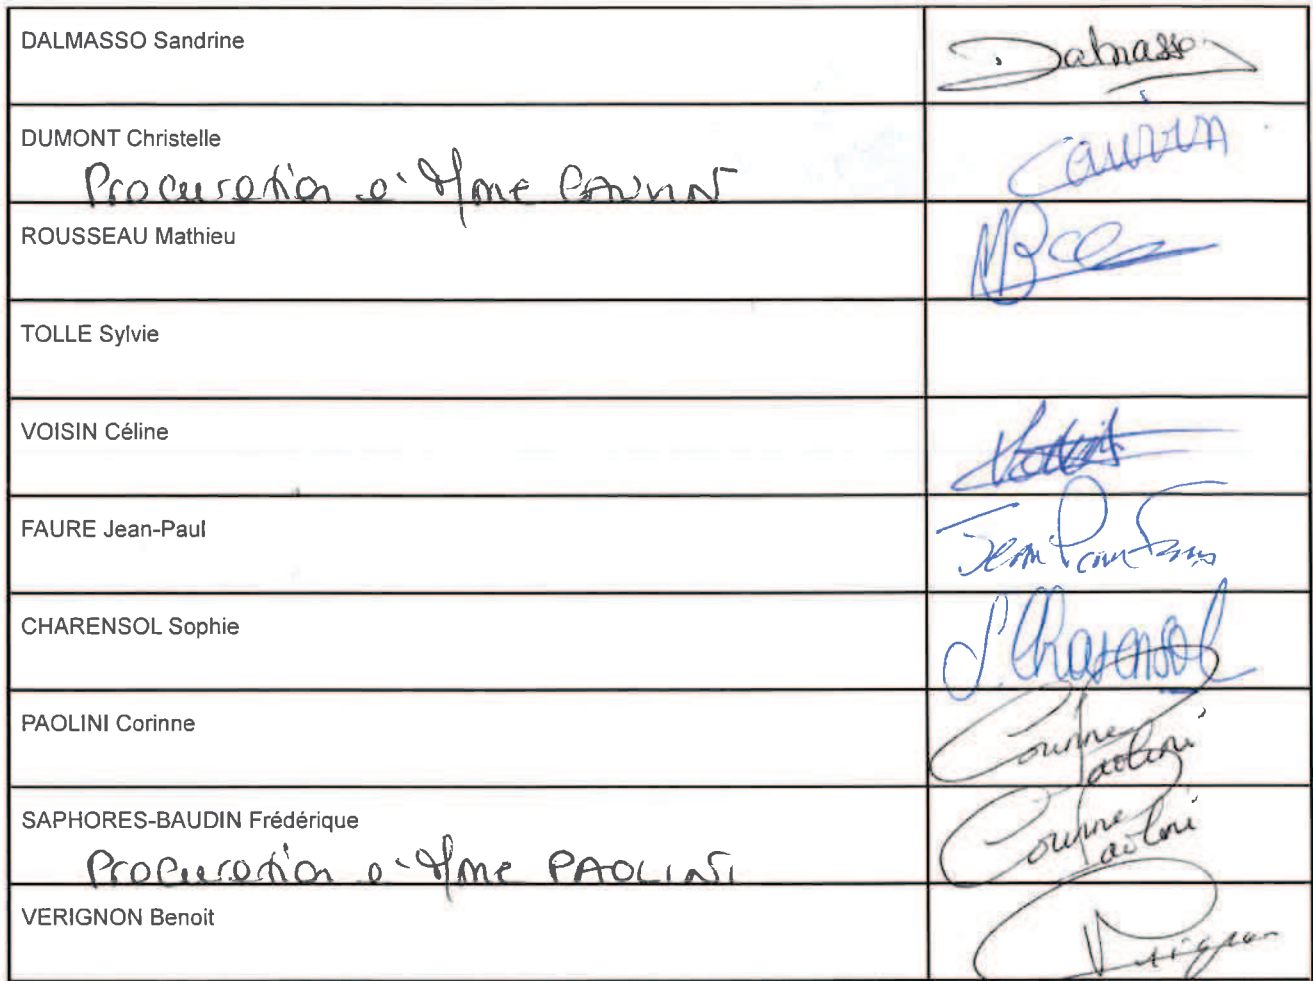 DALMASSO Sandrine
Dalmasso
DUMONT Christelle
Procuration à Mme CAUVIN
CAUVIN
ROUSSEAU Mathieu
TOLLE Sylvie
VOISIN Céline
FAURE Jean-Paul
Jean Paul Faure
CHARENSOL Sophie
S. Charensol
PAOLINI Corinne
Corinne
Paolini
SAPHORES-BAUDIN Frédérique
Procuration à Mme PAOLINI
Corinne
Paolini
VERIGNON Benoit
Verignon